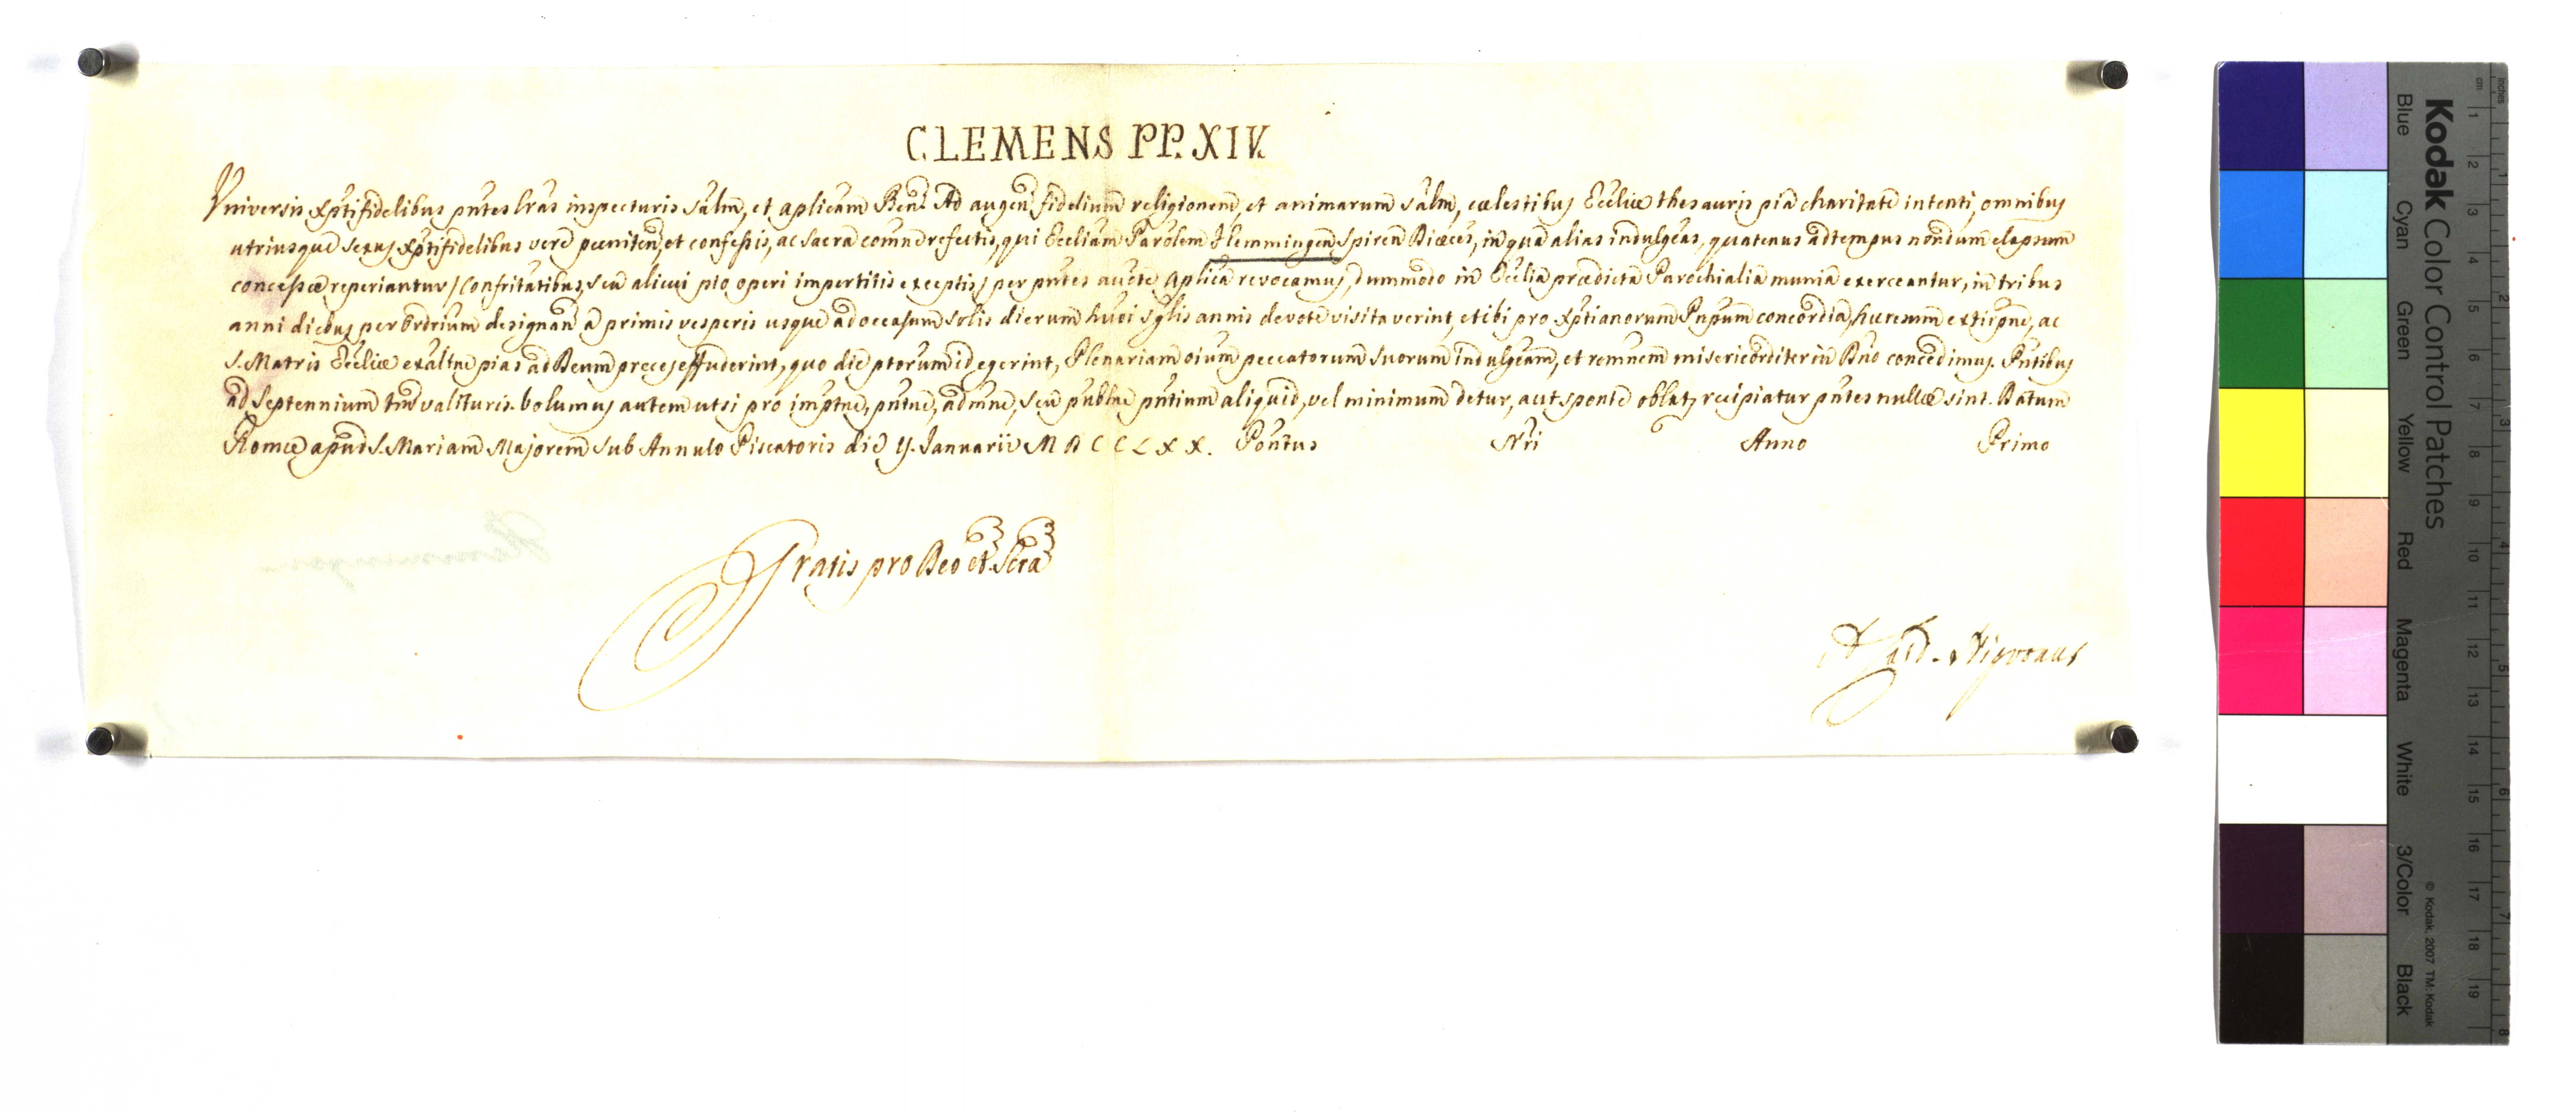 CLEMENS PP. XIV.
Universis Xptifidelibus pntes lras inspecturis salm, et aplicam Ben. Ad augen fidelium religionem, et animarum salm, cœlestibus Eccliæ thesauris pia charitate intenti, omnibus
utriusque sexus Xptifidelibus vere pœniten, et confessis, ac sacra comune refectis, qui Eccliam Parolem Flemmingen Spiren Diœces, in qua alias indulgeas, quatenus ad tempus nondum elapsum
concessæ reperiantur / Confritatibus, seu alicui pio operi impertitis exceptis / per pntes aucte Aplica revocamus, dummodo in Ecclia prædicta Parochialia munia exerceantur, in tribus
anni diebus per Ordrium designan a primis vesperis usque ad occasum solis dierum huõi sglis annis devote visitaverint, et ibi pro Xptianorum Pnpum concordia, hæresum extirpne, ac
S. Matris Ecclæ exaltne pias ad Deum preces effuderint, quo die ptorum id egerint, Plenariam oium peccatorum suorum indulgeam, et remnem misericorditer in Dno concedimus. Pntibus
ad Septennium tm valituris. Volumus autem ut si pro imptne, pntne, admne, seu publne pntium aliquid, vel minimum detur, aut sponte oblat, recipiatur pntes nullæ sint. Datum
Romæ apud S. Mariam Majorem sub Annulo Piscatoris die Y. Januarii M D C C L X X. Pontus Nri Anno Primo
Gratis pro Deo et Scra
A Card. Nigronus
Kodak Color Control Patches
Blue Cyan Green Yellow Red Magenta White 3/Color Black
© Kodak, 2007 TM: Kodak
cm 1 2 3 4 5 6 7 8 9 10 11 12 13 14 15 16 17 18 19
inches 1 2 3 4 5 6 7 8